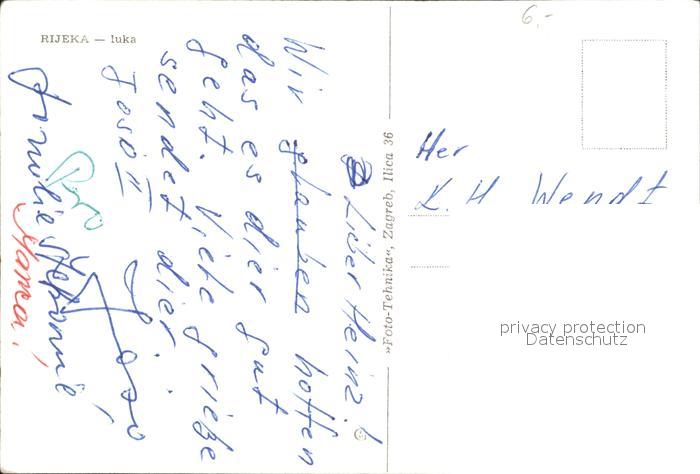 RIJEKA — luka
6,-
Liber Heinz!
Wir glauben hoffen
das es dier gut
geht. Viele grieße
sendet dier.
Joso II
Joso
Pero
Mama!
»Foto-Tehnika«, Zagreb, Ilica 36
Her
K. H Wendt
privacy protection
Datenschutz